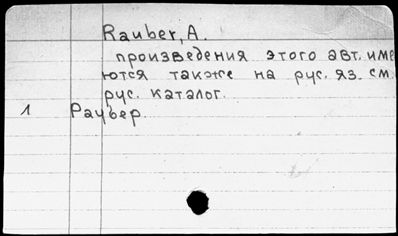 Rauber, A.
произведения этого авт. име
ются также на рус. яз. см.
рус. каталог.
1 Раубер.